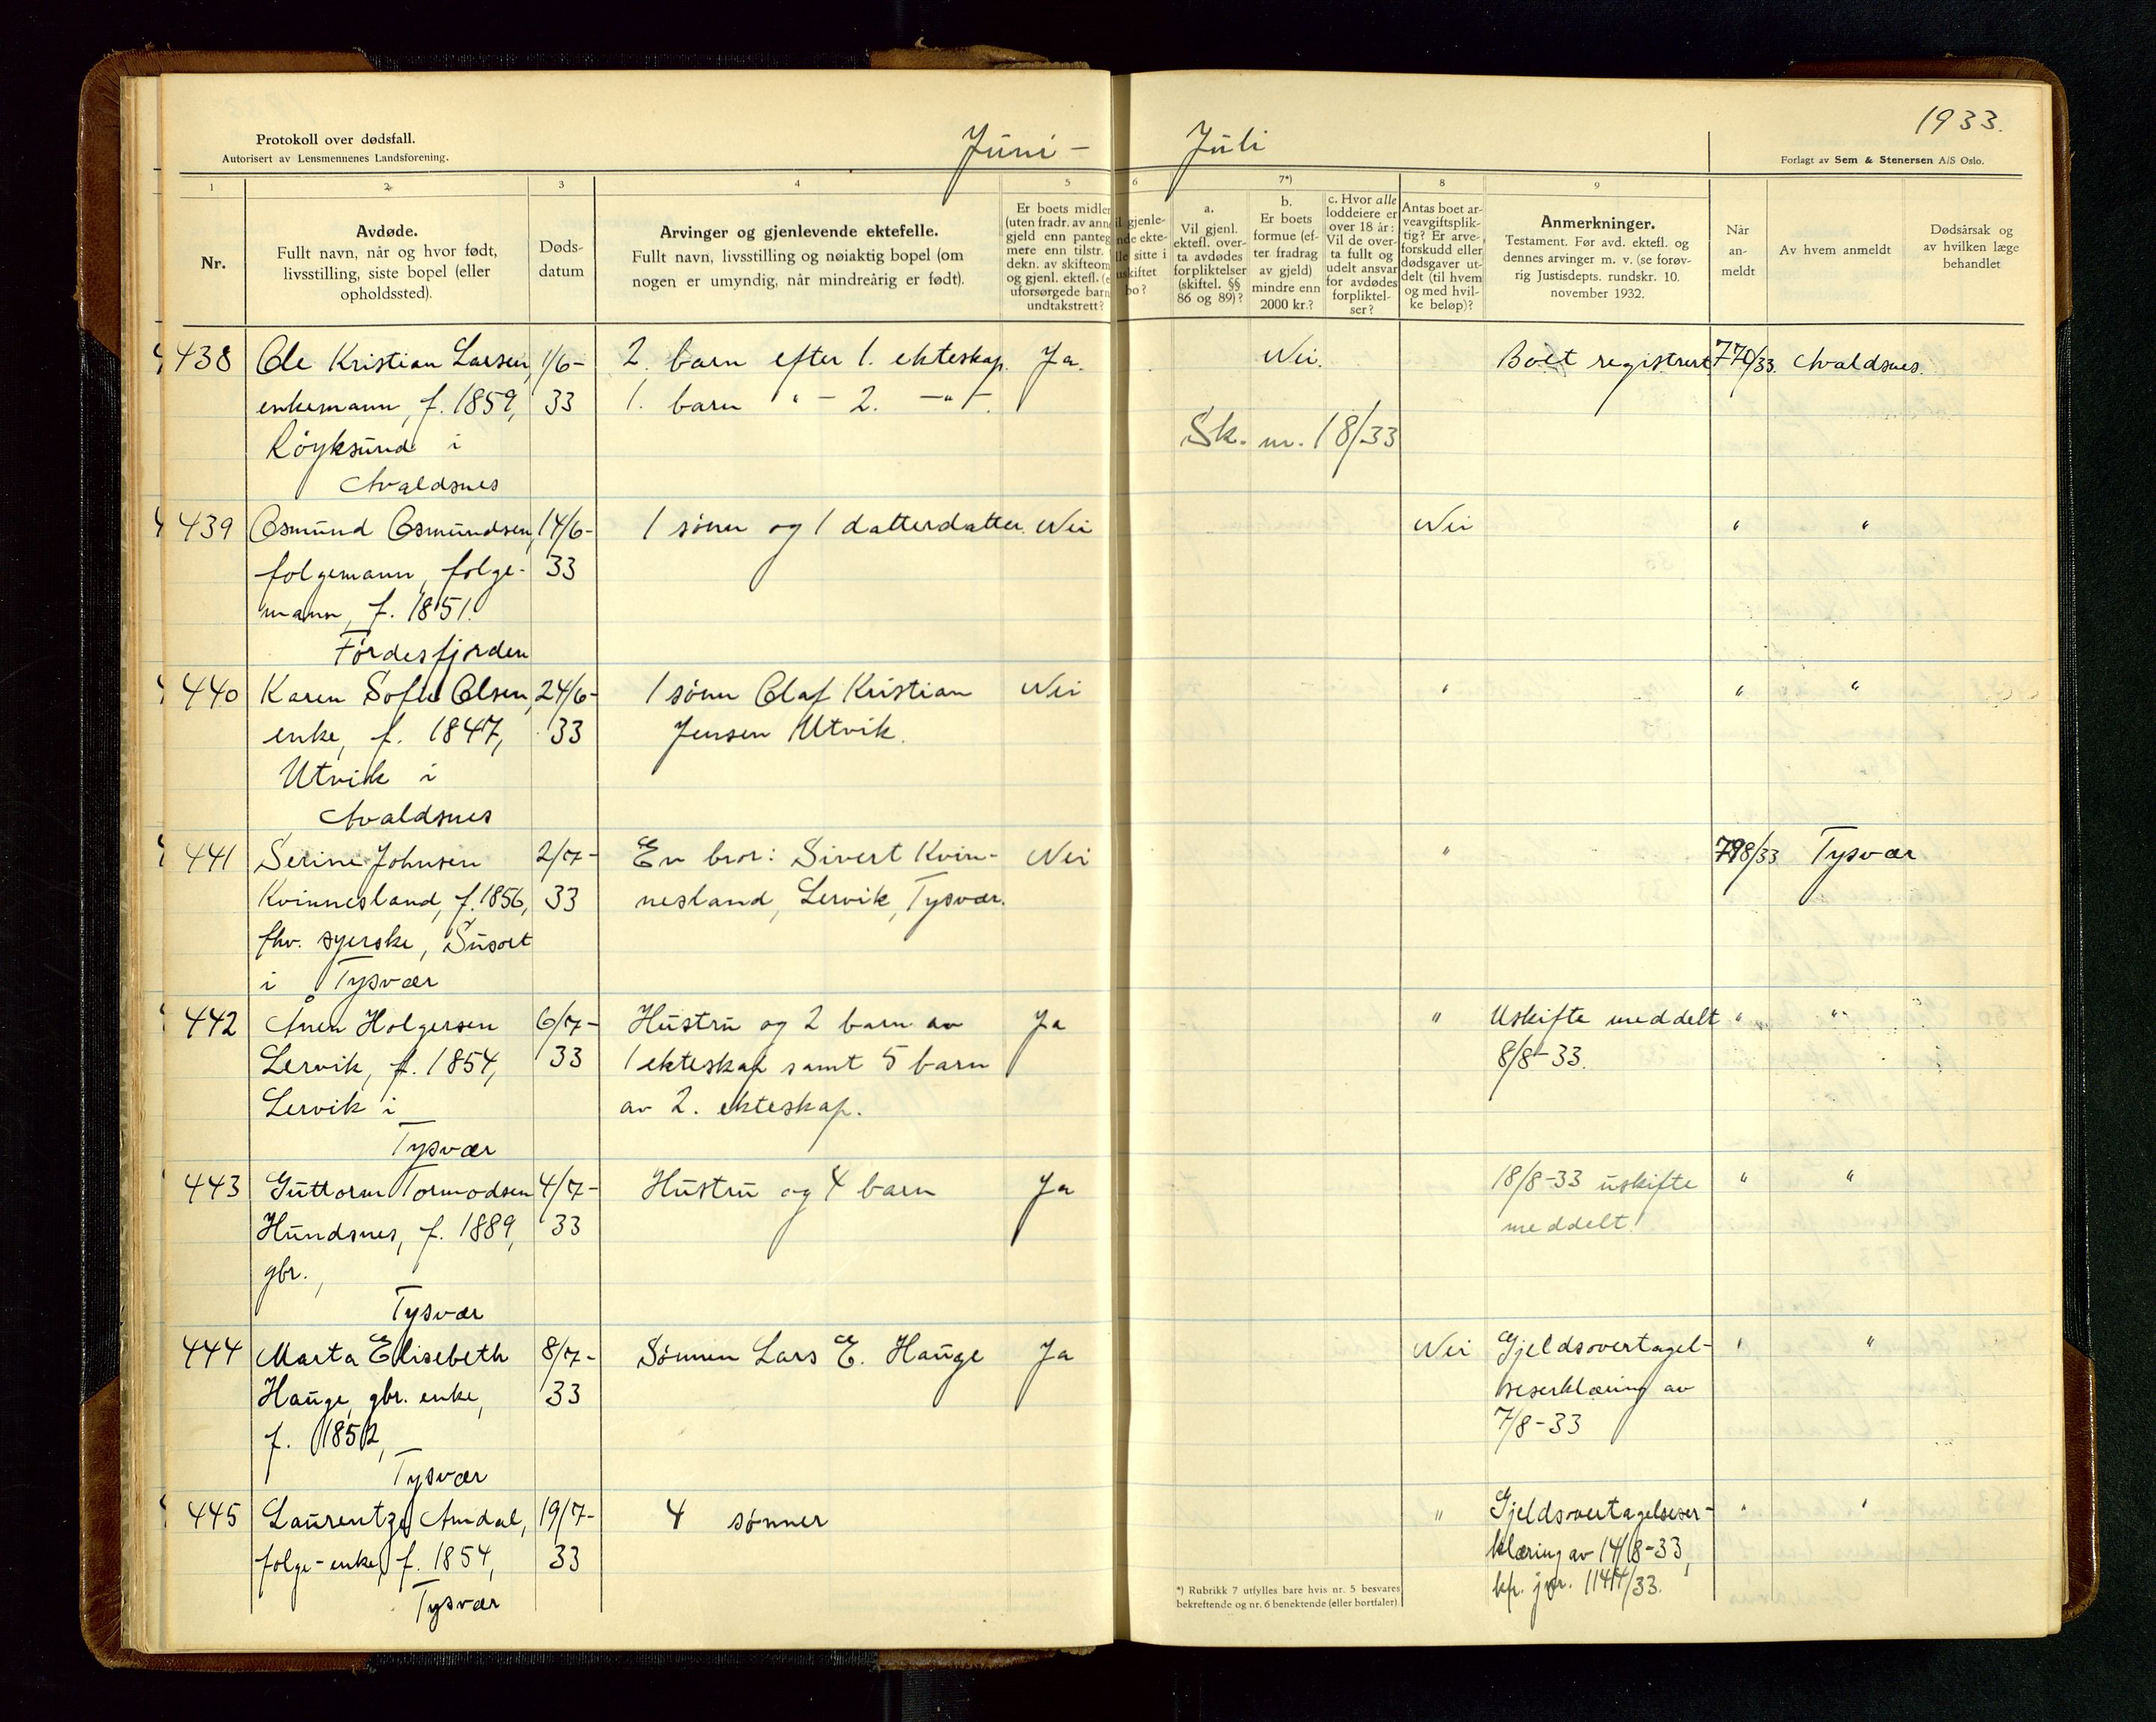 1933.
Juni - Juli
Protokoll over dødsfall.
Autorisert av Lensmennenes Landsforening.
Forlagt av Sem & Stenersen A/S Oslo.
1 2 3 4 5 6 7*) 8 9
Nr.
Avdøde.
Fullt navn, når og hvor født,
livsstilling, siste bopel (eller
opholdssted).
Døds-
datum
Arvinger og gjenlevende ektefelle.
Fullt navn, livsstilling og nøiaktig bopel (om
nogen er umyndig, når mindreårig er født).
Er boets midler
(uten fradr. av ann
gjeld enn panteg
mere enn tilstr.
dekn. av skifteom
og gjenl. ektefl. (e
uforsørgede barn
undtakstrett?
il gjenle-
nde ekte-
lle sitte i
uskiftet
bo?
a.
Vil gjenl.
ektefl. over-
ta avdødes
forpliktelser
(skiftel. §§
86 og 89)?
b.
Er boets
formue (ef-
ter fradrag
av gjeld)
mindre enn
2000 kr.?
c. Hvor alle
loddeiere er
over 18 år:
Vil de over-
ta fullt og
udelt ansvar
for avdødes
forpliktel-
ser?
Antas boet ar-
veavgiftsplik-
tig? Er arve-
forskudd eller
dødsgaver ut-
delt (til hvem
og med hvil-
ke beløp)?
Anmerkninger.
Testament. Før avd. ektefl. og
dennes arvinger m. v. (se forøv-
rig Justisdepts. rundskr. 10.
november 1932.
Når
an-
meldt
Av hvem anmeldt
Dødsårsak og
av hvilken læge
behandlet
438 Ole Kristian Larsen, 1/6- 2. barn efter 1. ekteskap. Ja. Nei. Boet registrert Avaldsnes.
enkemann, f. 1859, 33 1. barn " - 2. -"-.
Sk. nr. 18/33
Røyksund i
Avaldsnes
439 Osmund Osmundsen, 14/6- 1 sønn og 1 datterdatter. Nei Nei " "
folgemann, folge- 33
mann, f. 1851.
Førdesfjorden
440 Karen Sofie Olsen, 24/6- 1 sønn Olaf Kristian Nei " " "
enke, f. 1847, 33 Jensen Utvik.
Utvik i
Avaldsnes
441 Serine Johnsen 2/7- En bror: Sivert Kvin- Nei " Tysvær
Kvinnesland, f. 1856, 33 nesland, Lervik, Tysvær.
fhv. syerske, Susort
i Tysvær
442 Ånen Holgersen 6/7- Hustru og 2 barn av Ja " Uskifte meddelt " "
Lervik, f. 1854, 33 1 ekteskap samt 5 barn 8/8-33.
Lervik i av 2. ekteskap.
Tysvær
443 Guttorm Tormodsen 4/7- Hustru og 4 barn Ja 18/8-33 uskifte " "
Hundsnes, f. 1889, 33 meddelt.
gbr.,
Tysvær
444 Marta Elisebeth 8/7- Sønnen Lars E. Hauge Ja Nei Gjeldsovertagel- " "
Hauge, gbr. enke, 33 seserklæring av
f. 1852, 7/8-33
Tysvær
445 Laurentze Amdal, 19/7- 4 sønner " Gjeldsovertagelseser- " "
folge-enke, f. 1854, 33 klæring av 14/8-33,
Tysvær kfr. jnr. 1144/33.
*) Rubrikk 7 utfylles bare hvis nr. 5 besvares
bekreftende og nr. 6 benektende (eller bortfaler).